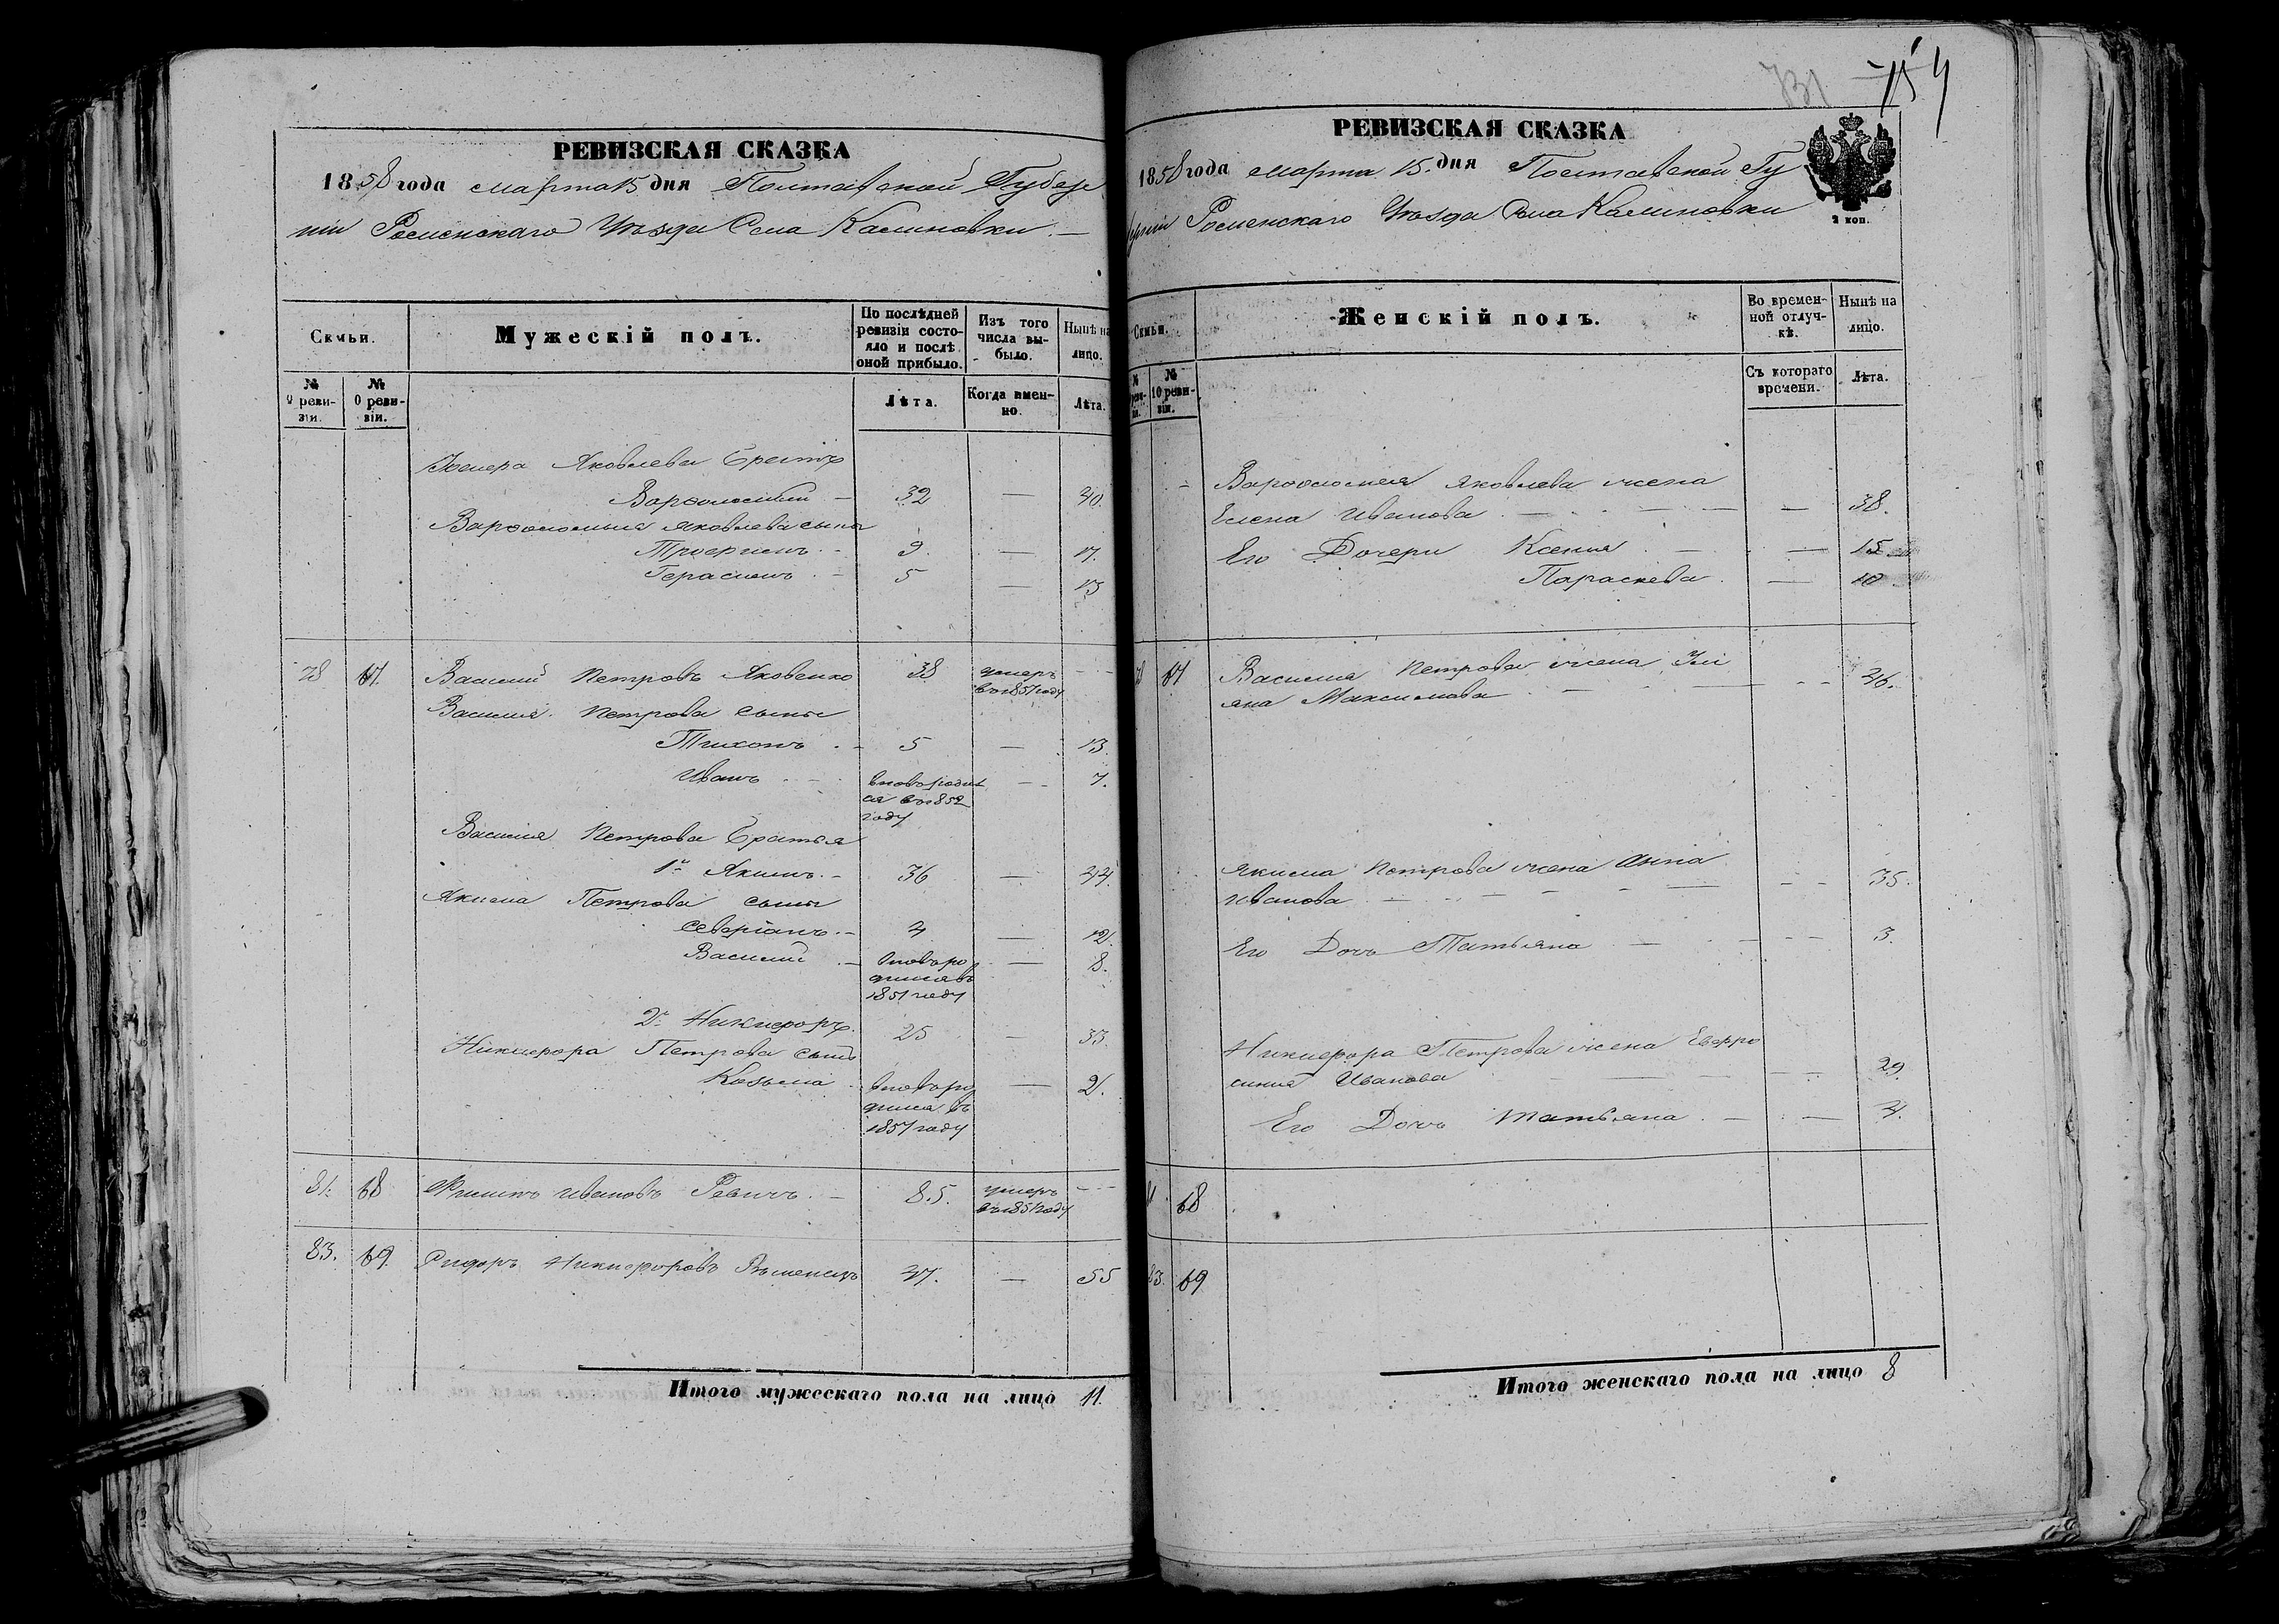 731 754
РЕВИЗСКАЯ СКАЗКА
1858 года марта 15 дня Полтавской Губер
ніи Роменскаго Уѣзда Села Калиновки.
Семьи.
Мужескій полъ.
По послѣдней ревизіи состояло и послѣ оной прибыло.
Изъ того числа выбыло.
Нынѣ на лицо.
№ 9 ревизіи.
№ 0 ревизіи.
Лѣта.
Когда именно.
Лѣта.
Яковлева братъ
Варѳоломей 32 — 40.
Варѳоломея Яковлева сыны
Трофимъ 9. — 17.
Герасимъ 5 — 13
78 67. Василий Петровъ Яковенко 38 умеръ въ 1851 году
Василия Петрова сыны
Тихонъ 5 — 13.
Иванъ вновь родился въ 1852 году — 7.
Василия Петрова братья
1й Якимъ 36 — 44.
Якима Петрова сыны
Северіанъ 4 — 12.
Василий вновь родился въ 1851 году — 8.
2й Никифоръ 25 — 33.
Никифора Петрова сынъ
Козьма вновь родился въ 1857 году — 2.
81. 68 Филипъ Ивановъ 85. умеръ въ 1851 году
83. 69. Сидоръ Никифоровъ 47. — 55
Итого мужескаго пола на лицо 11.
РЕВИЗСКАЯ СКАЗКА
1858 года марта 15. дня Полтавской Гу
берніи Роменскаго Уѣзда Села Калиновки
2 коп.
Семьи.
Женскій полъ.
Во временной отлучкѣ.
Нынѣ на лицо.
№ реви-зіи.
№ 10 реви-зіи.
Съ котораго времени.
Лѣта.
Варѳоломея Яковлева жена
Елена Иванова — 38.
Его Дочери Ксения — 15
Параскева — 10
78 67 Василия Петрова жена Ули
яна Максимова 46.
Якима Петрова жена Анна
Иванова 35.
Его Дочь Татьяна 3.
Никифора Петрова жена Евфро
синия Иванова 29.
Его Дочь Татьяна 4.
81. 68
83. 69
Итого женскаго пола на лицо 8